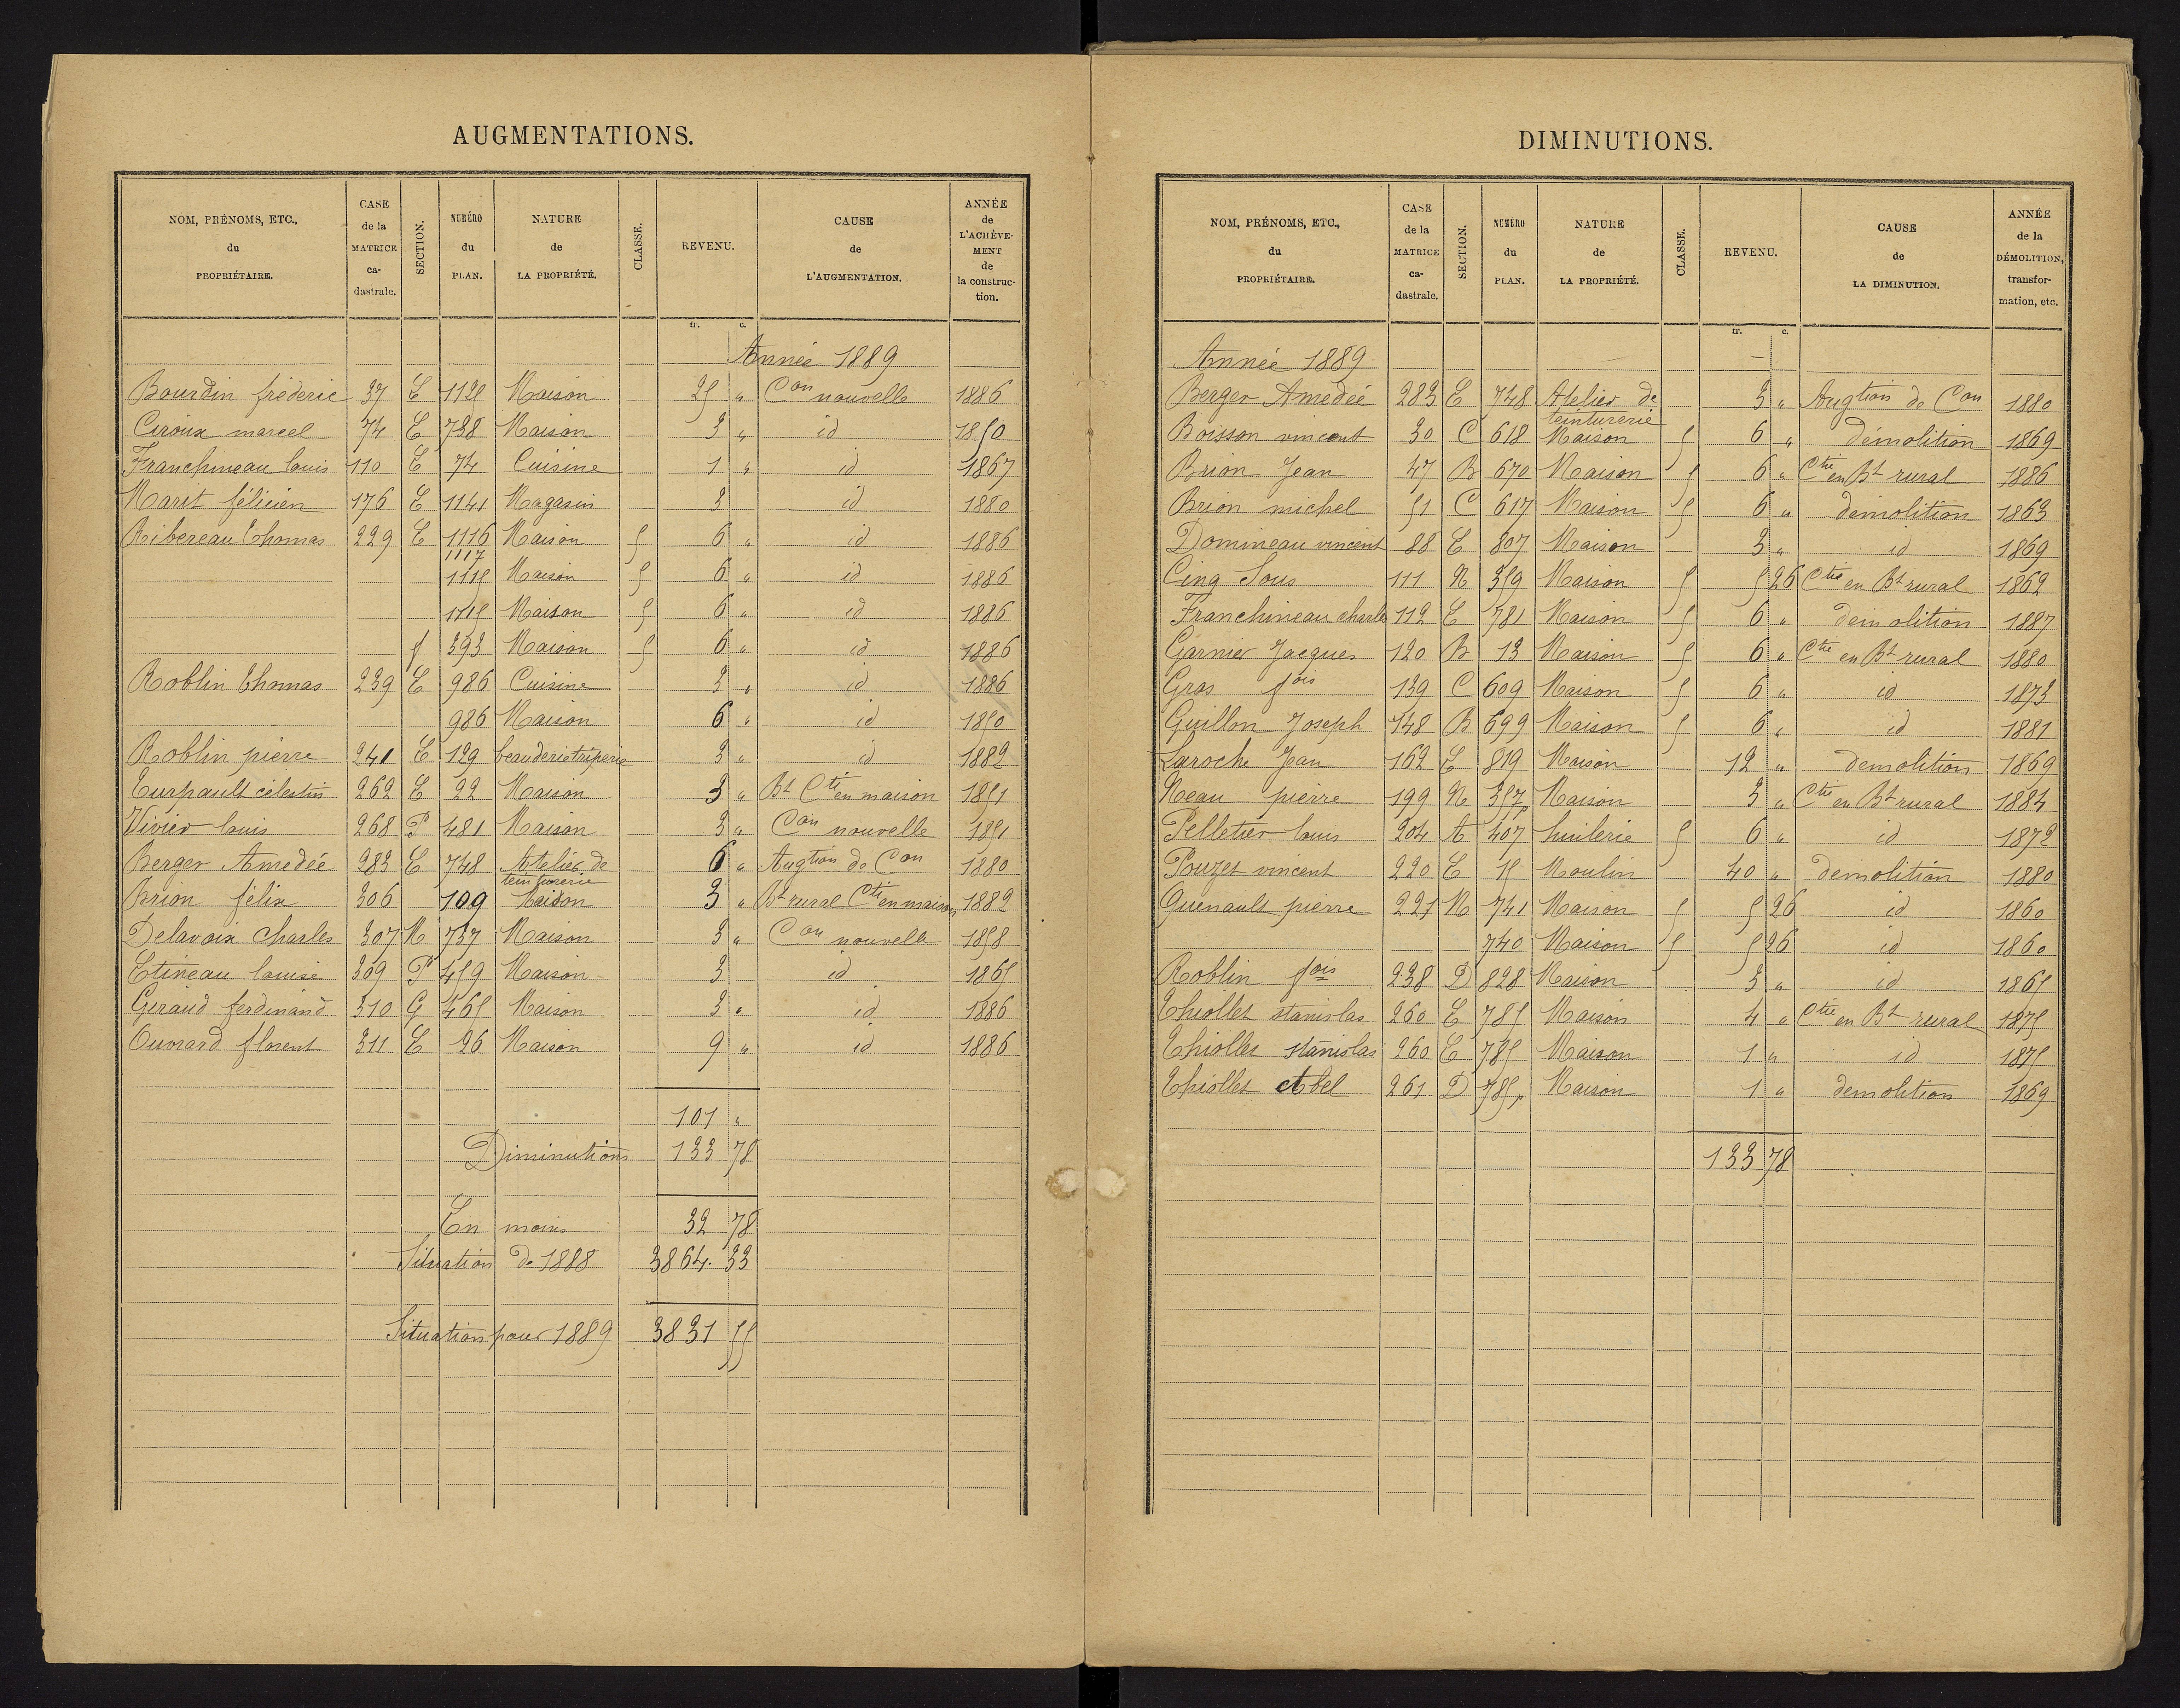 AUGMENTATIONS.
NOM, PRÉNOMS, ETC., du PROPRIÉTAIRE.
CASE de la MATRICE ca-dastrale.
SECTION.
NUMÉRO du PLAN.
NATURE de LA PROPRIÉTÉ.
CLASSE.
REVENU.
CAUSE de L'AUGMENTATION.
ANNÉE de L'ACHÈVE-MENT de la construc-tion.
fr. c.
Année 1889
Bourdin fréderic 37 E 1125 Maison 25 " Con nouvelle 1886
Ciroux marcel 74 E 738 Maison 3 " id 1850
Franchineau louis 110 E 74 Cuisine 1 " id 1867
Marit félicien 176 E 1141 Magasin 3 id 1880
Ribereau Thomas 229 E 1116 Maison 5 6 " id 1886
1117
1115 Maison 5 6 " id 1886
1115 Maison 5 6 " id 1886
f 393 Maison 5 6 " id 1886
Roblin Thomas 239 E 986 Cuisine 3 " id 1886
986 Maison 6 " id 1850
Roblin pierre 241 E 129 3 " id 1882
Turpault célestin 262 E 22 Maison 3 " Bt Cti en maison 1851
Vivier louis 268 P 481 Maison 3 " Con nouvelle 1851
Berger Amedée 283 E 748 Atelier de teinturerie 6 " Augtion de Con 1880
Brion félix 306 109 Maison 3 " Bt rural Cti en maison 1882
Delavoix Charles 307 M 737 Maison 3 " Con nouvelle 1858
Etineau louise 309 P 459 Maison 3 id 1865
Geraud ferdinand 310 G 465 Maison 3 " id 1886
Ouvrard florent 311 E 26 Maison 9 " id 1886
101 "
Diminutions 133 78
En moins 32 78
Situation de 1888 3864. 33
Situation pour 1889 3831 55
DIMINUTIONS.
NOM, PRÉNOMS, ETC., du PROPRIÉTAIRE.
CASE de la MATRICE ca-dastrale.
SECTION.
NUMÉRO du PLAN.
NATURE de LA PROPRIÉTÉ.
CLASSE.
REVENU.
CAUSE de LA DIMINUTION.
ANNÉE de la DÉMOLITION, transfor-mation, etc.
fr. c.
Année 1889
Berger Amedée 283 E 748 Atelier de teinturerie 3 " Augtion de Con 1880
Boisson vincent 30 C 618 Maison 5 6 " démolition 1869
Brion Jean 47 B 670 Maison 5 6 " Ctie en Bt rural 1886
Brion michel 51 C 617 Maison 5 6 " démolition 1863
Domineau vincent 88 E 807 Maison 3 " id 1869
Cinq Sous 111 N 359 Maison 5 5 26 Ctie en Bt rural 1862
Franchineau charles 112 E 781 Maison 5 6 " démolition 1887
Garnier Jacques 120 B 13 Maison 5 6 " Ctie en Bt rural 1880
Gras fois 139 C 609 Maison 5 6 " id 1873
Guillon Joseph 148 B 699 Maison 5 6 " id 1881
Laroche Jean 162 E 819 Maison 12 " demolition 1869
Neau pierre 199 N 357 Maison 3 " Ctie en Bt rural 1884
Pelletier louis 204 A 407 huilerie 5 6 " id 1872
Pouzet vincent 220 E 15 Moulin 40 " demolition 1880
Quenault pierre 221 N 741 Maison 5 5 26 id 1860
740 Maison 5 5 26 id 1860
Roblin fois 238 D 828 Maison 3 " id 1865
Thiollet stanislas 260 E 785 Maison 4 " Ctie en Bt rural 1875
Thiollet stanislas 260 E 785 Maison 1 " id 1875
Thiollet Abel 261 D 785 Maison 1 " demolition 1869
133 78